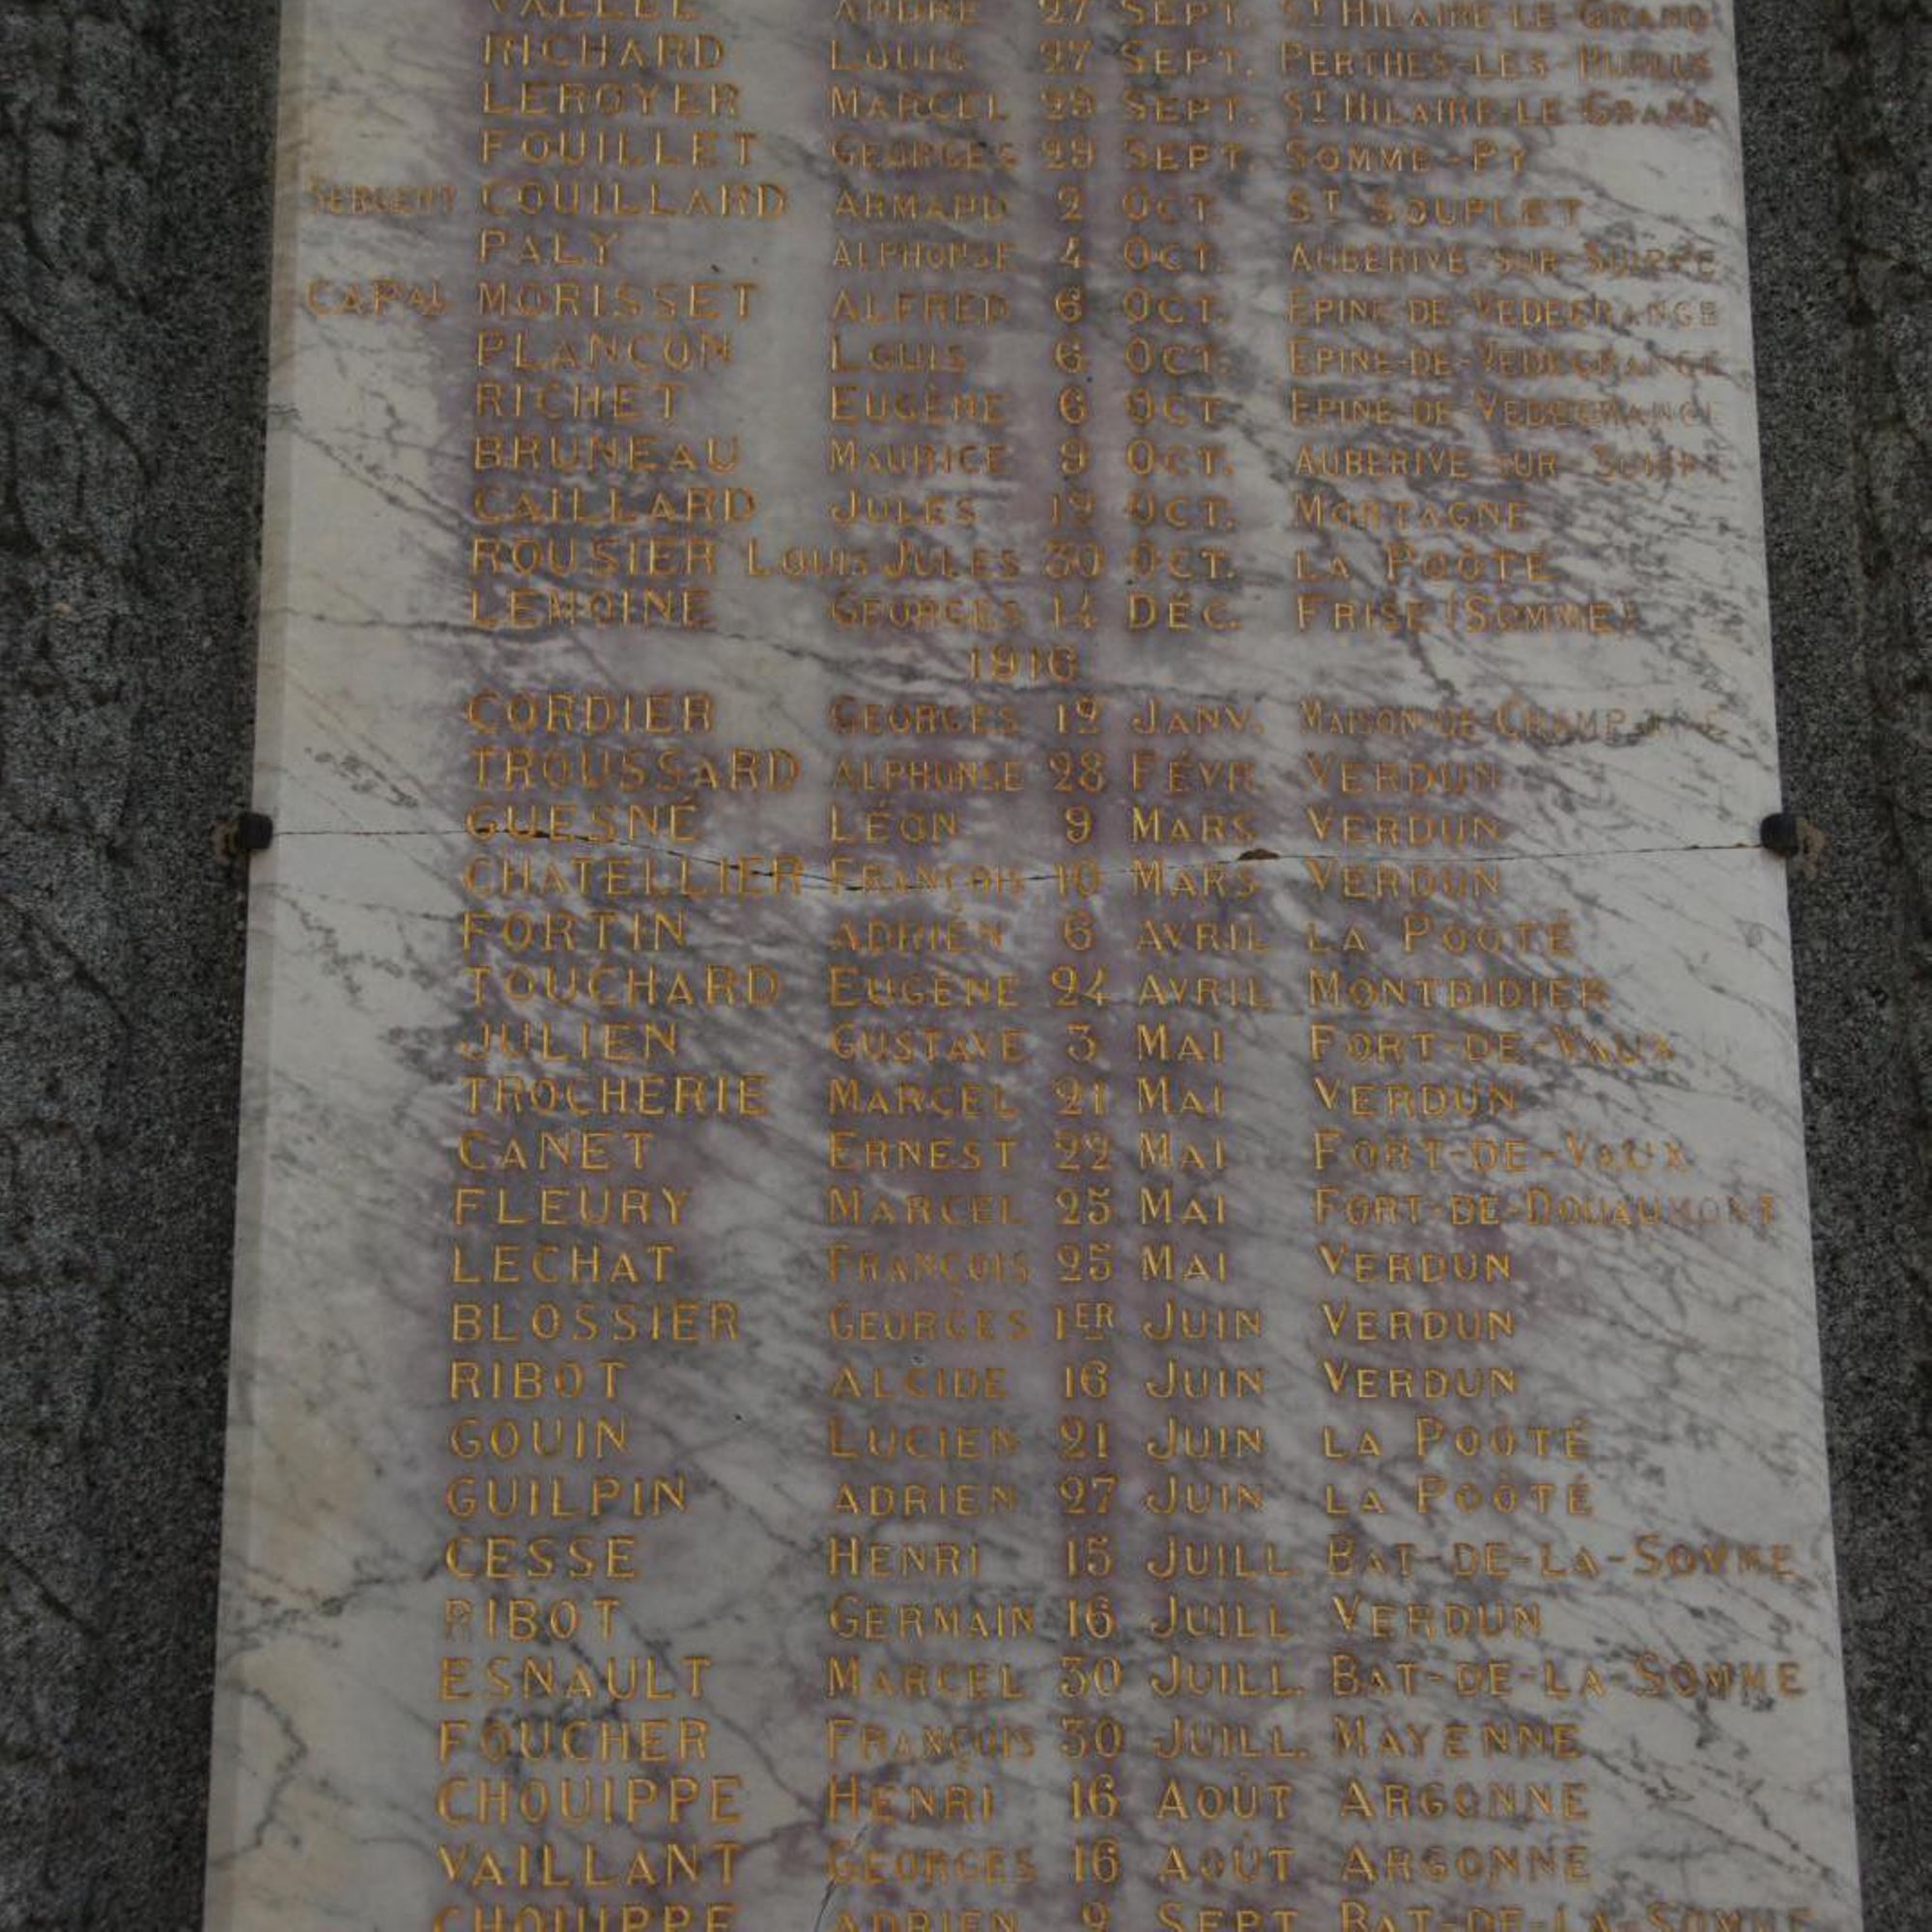 VALLÉE ANDRÉ 27 SEPT. ST HILAIRE-LE-GRAND
RICHARD LOUIS 27 SEPT. PERTHES-LES-HURLUS
LEROYER MARCEL 29 SEPT. ST HILAIRE-LE-GRAND
FOUILLET GEORGES 29 SEPT. SOMME-PY
SERGENT COUILLARD ARMAND 2 OCT. ST SOUPLET
PALY ALPHONSE 4 OCT. AUBERIVE-SUR-SUIPPE
CAPAL MORISSET ALFRED 6 OCT. EPINE-DE-VEDEGRANGE
PLANÇON LOUIS 6 OCT. EPINE-DE-VEDEGRANGE
RICHET EUGÈNE 6 OCT. EPINE-DE-VEDEGRANGE
BRUNEAU MAURICE 9 OCT. AUBERIVE-SUR-SUIPPE
CAILLARD JULES 19 OCT. MORTAGNE
ROUSIER LOUIS JULES 30 OCT. LA POÔTÉ
LEMOINE GEORGES 14 DÉC. FRISE (SOMME)
1916
CORDIER GEORGES 12 JANV. MAISON-DE-CHAMPAGNE
TROUSSARD ALPHONSE 28 FÉVR. VERDUN
GUESNÉ LÉON 9 MARS VERDUN
CHATELLIER FRANÇOIS 10 MARS VERDUN
FORTIN ADRIEN 6 AVRIL LA POÔTÉ
TOUCHARD EUGÈNE 24 AVRIL MONTDIDIER
JULIEN GUSTAVE 3 MAI FORT-DE-VAUX
TROCHERIE MARCEL 21 MAI VERDUN
CANET ERNEST 22 MAI FORT-DE-VAUX
FLEURY MARCEL 25 MAI FORT-DE-DOUAUMONT
LECHAT FRANÇOIS 25 MAI VERDUN
BLOSSIER GEORGES 1ER JUIN VERDUN
RIBOT ALCIDE 16 JUIN VERDUN
GOUIN LUCIEN 21 JUIN LA POÔTÉ
GUILPIN ADRIEN 27 JUIN LA POÔTÉ
CESSE HENRI 15 JUILL. BAT-DE-LA-SOMME
RIBOT GERMAIN 16 JUILL. VERDUN
ESNAULT MARCEL 30 JUILL. BAT-DE-LA-SOMME
FOUCHER FRANÇOIS 30 JUILL. MAYENNE
CHOUIPPE HENRI 16 AOÛT ARGONNE
VAILLANT GEORGES 16 AOÛT ARGONNE
CHOUIPPE ADRIEN 9 SEPT. BAT-DE-LA-SOMME